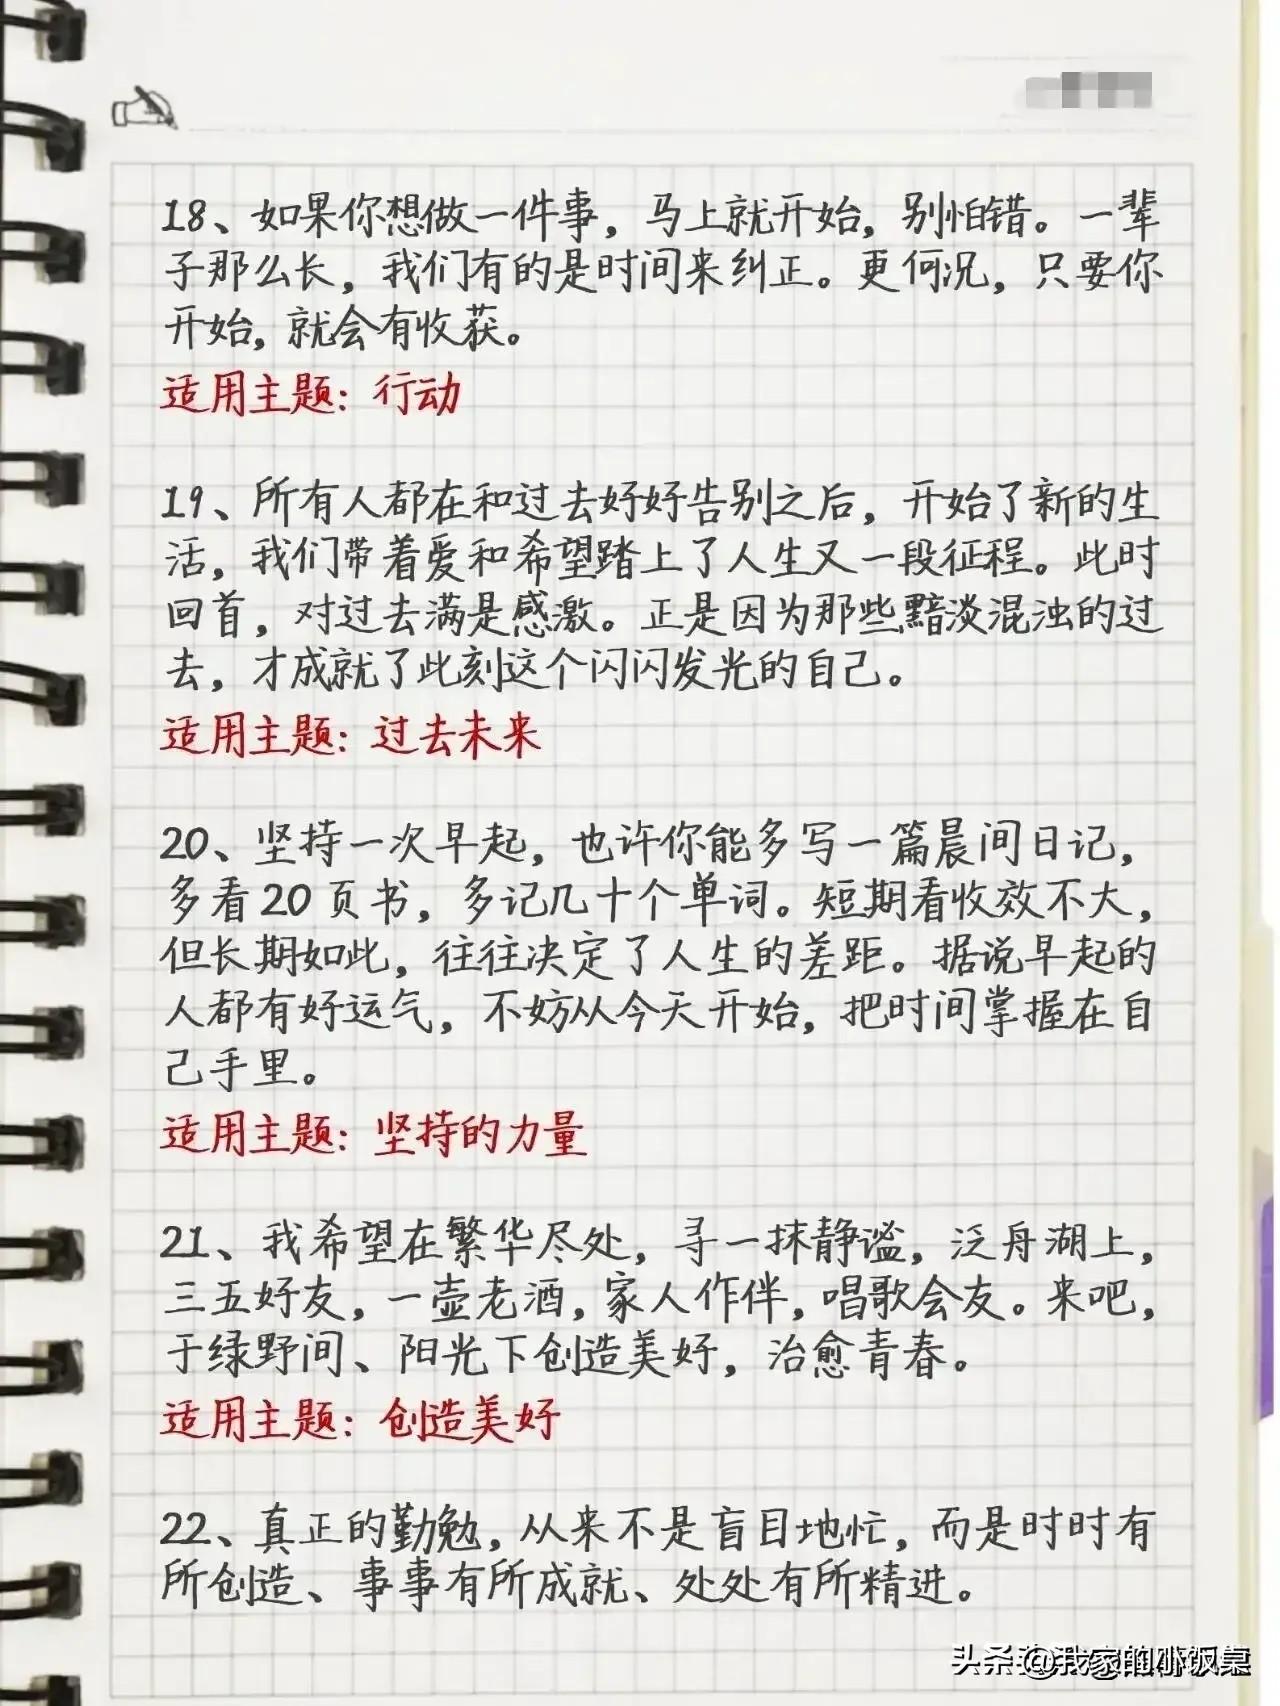 18、如果你想做一件事，马上就开始，别怕错。一辈
子那么长，我们有的是时间来纠正。更何况，只要你
开始，就会有收获。
适用主题：行动
19、所有人都在和过去好好告别之后，开始了新的生
活，我们带着爱和希望踏上了人生又一段征程。此时
回首，对过去满是感激。正是因为那些黯淡混浊的过
去，才成就了此刻这个闪闪发光的自己。
适用主题：过去未来
20、坚持一次早起，也许你能多写一篇晨间日记，
多看20页书，多记几十个单词。短期看收效不大，
但长期如此，往往决定了人生的差距。据说早起的
人都有好运气，不妨从今天开始，把时间掌握在自
己手里。
适用主题：坚持的力量
21、我希望在繁华尽处，寻一抹静谧，泛舟湖上，
三五好友，一壶老酒，家人作伴，唱歌会友。来吧，
于绿野间、阳光下创造美好，治愈青春。
适用主题：创造美好
22、真正的勤勉，从来不是盲目地忙，而是时时有
所创造、事事有所成就、处处有所精进。
头条 @我家的小饭桌